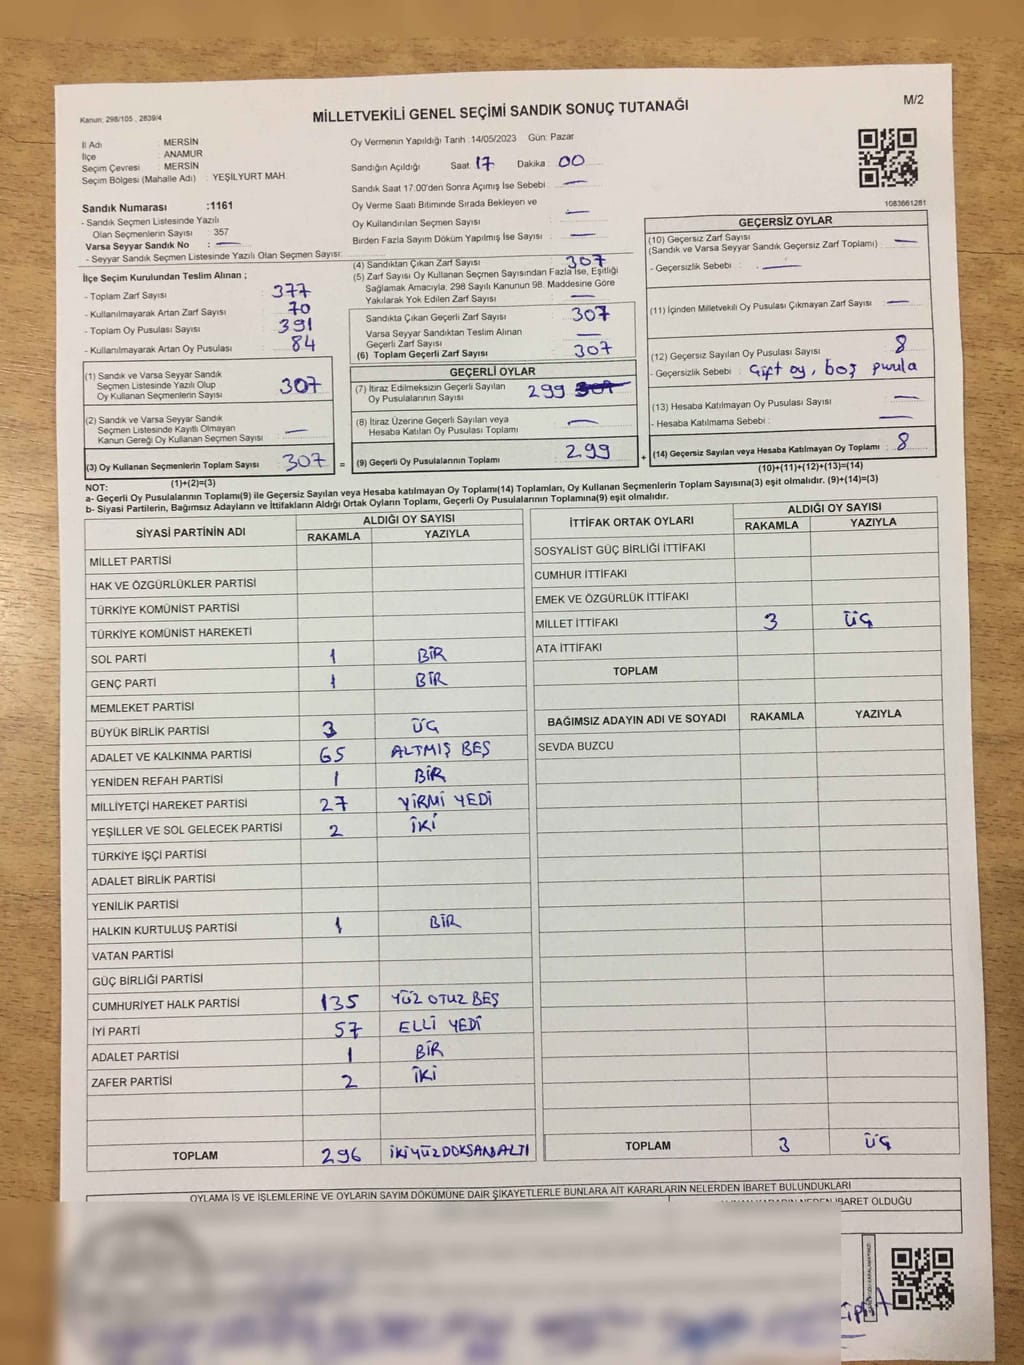 Kanun: 298/105 , 2839/4
MİLLETVEKİLİ GENEL SEÇİMİ SANDIK SONUÇ TUTANAĞI
M/2
İl Adı : MERSİN
İlçe : ANAMUR
Seçim Çevresi : MERSİN
Seçim Bölgesi (Mahalle Adı) : YEŞİLYURT MAH.
Sandık Numarası :1161
- Sandık Seçmen Listesinde Yazılı
Olan Seçmenlerin Sayısı : 357
Varsa Seyyar Sandık No : —
- Seyyar Sandık Seçmen Listesinde Yazılı Olan Seçmen Sayısı:
Oy Vermenin Yapıldığı Tarih :14/05/2023 Gün: Pazar
Sandığın Açıldığı Saat: 17 Dakika : 00
Sandık Saat 17:00'den Sonra Açımış İse Sebebi : —
Oy Verme Saati Bitiminde Sırada Bekleyen ve
Oy Kullandırılan Seçmen Sayısı : —
Birden Fazla Sayım Döküm Yapılmış İse Sayısı : —
1083661281
İlçe Seçim Kurulundan Teslim Alınan ;
- Toplam Zarf Sayısı : 377
- Kullanılmayarak Artan Zarf Sayısı : 70
- Toplam Oy Pusulası Sayısı : 391
- Kullanılmayarak Artan Oy Pusulası : 84
(1) Sandık ve Varsa Seyyar Sandık
Seçmen Listesinde Yazılı Olup
Oy Kullanan Seçmenlerin Sayısı : 307
(2) Sandık ve Varsa Seyyar Sandık
Seçmen Listesinde Kayıtlı Olmayan
Kanun Gereği Oy Kullanan Seçmen Sayısı : —
(3) Oy Kullanan Seçmenlerin Toplam Sayısı : 307 =
(1)+(2)=(3)
(4) Sandıktan Çıkan Zarf Sayısı : 307
(5) Zarf Sayısı Oy Kullanan Seçmen Sayısından Fazla İse, Eşitliği
Sağlamak Amacıyla, 298 Sayılı Kanunun 98. Maddesine Göre
Yakılarak Yok Edilen Zarf Sayısı : —
Sandıkta Çıkan Geçerli Zarf Sayısı : 307
Varsa Seyyar Sandıktan Teslim Alınan
Geçerli Zarf Sayısı : —
(6) Toplam Geçerli Zarf Sayısı : 307
GEÇERLİ OYLAR
(7) İtiraz Edilmeksizin Geçerli Sayılan
Oy Pusulalarının Sayısı : 299 307
(8) İtiraz Üzerine Geçerli Sayılan veya
Hesaba Katılan Oy Pusulası Toplamı : —
(9) Geçerli Oy Pusulalarının Toplamı : 299 +
GEÇERSİZ OYLAR
(10) Geçersiz Zarf Sayısı
(Sandık ve Varsa Seyyar Sandık Geçersiz Zarf Toplamı) : —
- Geçersizlik Sebebi : —
(11) İçinden Milletvekili Oy Pusulası Çıkmayan Zarf Sayısı : —
(12) Geçersiz Sayılan Oy Pusulası Sayısı : 8
- Geçersizlik Sebebi : Çift oy, boş pusula
(13) Hesaba Katılmayan Oy Pusulası Sayısı : —
- Hesaba Katılmama Sebebi : —
(14) Geçersiz Sayılan veya Hesaba Katılmayan Oy Toplamı : 8
(10)+(11)+(12)+(13)=(14)
NOT:
a- Geçerli Oy Pusulalarının Toplamı(9) ile Geçersiz Sayılan veya Hesaba katılmayan Oy Toplamı(14) Toplamları, Oy Kullanan Seçmenlerin Toplam Sayısına(3) eşit olmalıdır. (9)+(14)=(3)
b- Siyasi Partilerin, Bağımsız Adayların ve İttifakların Aldığı Ortak Oyların Toplamı, Geçerli Oy Pusulalarının Toplamına(9) eşit olmalıdır.
SİYASİ PARTİNİN ADI ALDIĞI OY SAYISI
RAKAMLA YAZIYLA
MİLLET PARTİSİ
HAK VE ÖZGÜRLÜKLER PARTİSİ
TÜRKİYE KOMÜNİST PARTİSİ
TÜRKİYE KOMÜNİST HAREKETİ
SOL PARTİ 1 BİR
GENÇ PARTİ 1 BİR
MEMLEKET PARTİSİ
BÜYÜK BİRLİK PARTİSİ 3 ÜÇ
ADALET VE KALKINMA PARTİSİ 65 ALTMIŞ BEŞ
YENİDEN REFAH PARTİSİ 1 BİR
MİLLİYETÇİ HAREKET PARTİSİ 27 YİRMİ YEDİ
YEŞİLLER VE SOL GELECEK PARTİSİ 2 İKİ
TÜRKİYE İŞÇİ PARTİSİ
ADALET BİRLİK PARTİSİ
YENİLİK PARTİSİ
HALKIN KURTULUŞ PARTİSİ 1 BİR
VATAN PARTİSİ
GÜÇ BİRLİĞİ PARTİSİ
CUMHURİYET HALK PARTİSİ 135 YÜZ OTUZ BEŞ
İYİ PARTİ 57 ELLİ YEDİ
ADALET PARTİSİ 1 BİR
ZAFER PARTİSİ 2 İKİ
TOPLAM 296 İKİYÜZDOKSANALTI
İTTİFAK ORTAK OYLARI ALDIĞI OY SAYISI
RAKAMLA YAZIYLA
SOSYALİST GÜÇ BİRLİĞİ İTTİFAKI
CUMHUR İTTİFAKI
EMEK VE ÖZGÜRLÜK İTTİFAKI
MİLLET İTTİFAKI 3 ÜÇ
ATA İTTİFAKI
TOPLAM
BAĞIMSIZ ADAYIN ADI VE SOYADI RAKAMLA YAZIYLA
SEVDA BUZCU
TOPLAM 3 ÜÇ
OYLAMA İŞ VE İŞLEMLERİNE VE OYLARIN SAYIM DÖKÜMÜNE DAİR ŞİKAYETLERLE BUNLARA AİT KARARLARIN NELERDEN İBARET BULUNDUKLARI
KARARIN NEDEN İBARET OLDUĞU